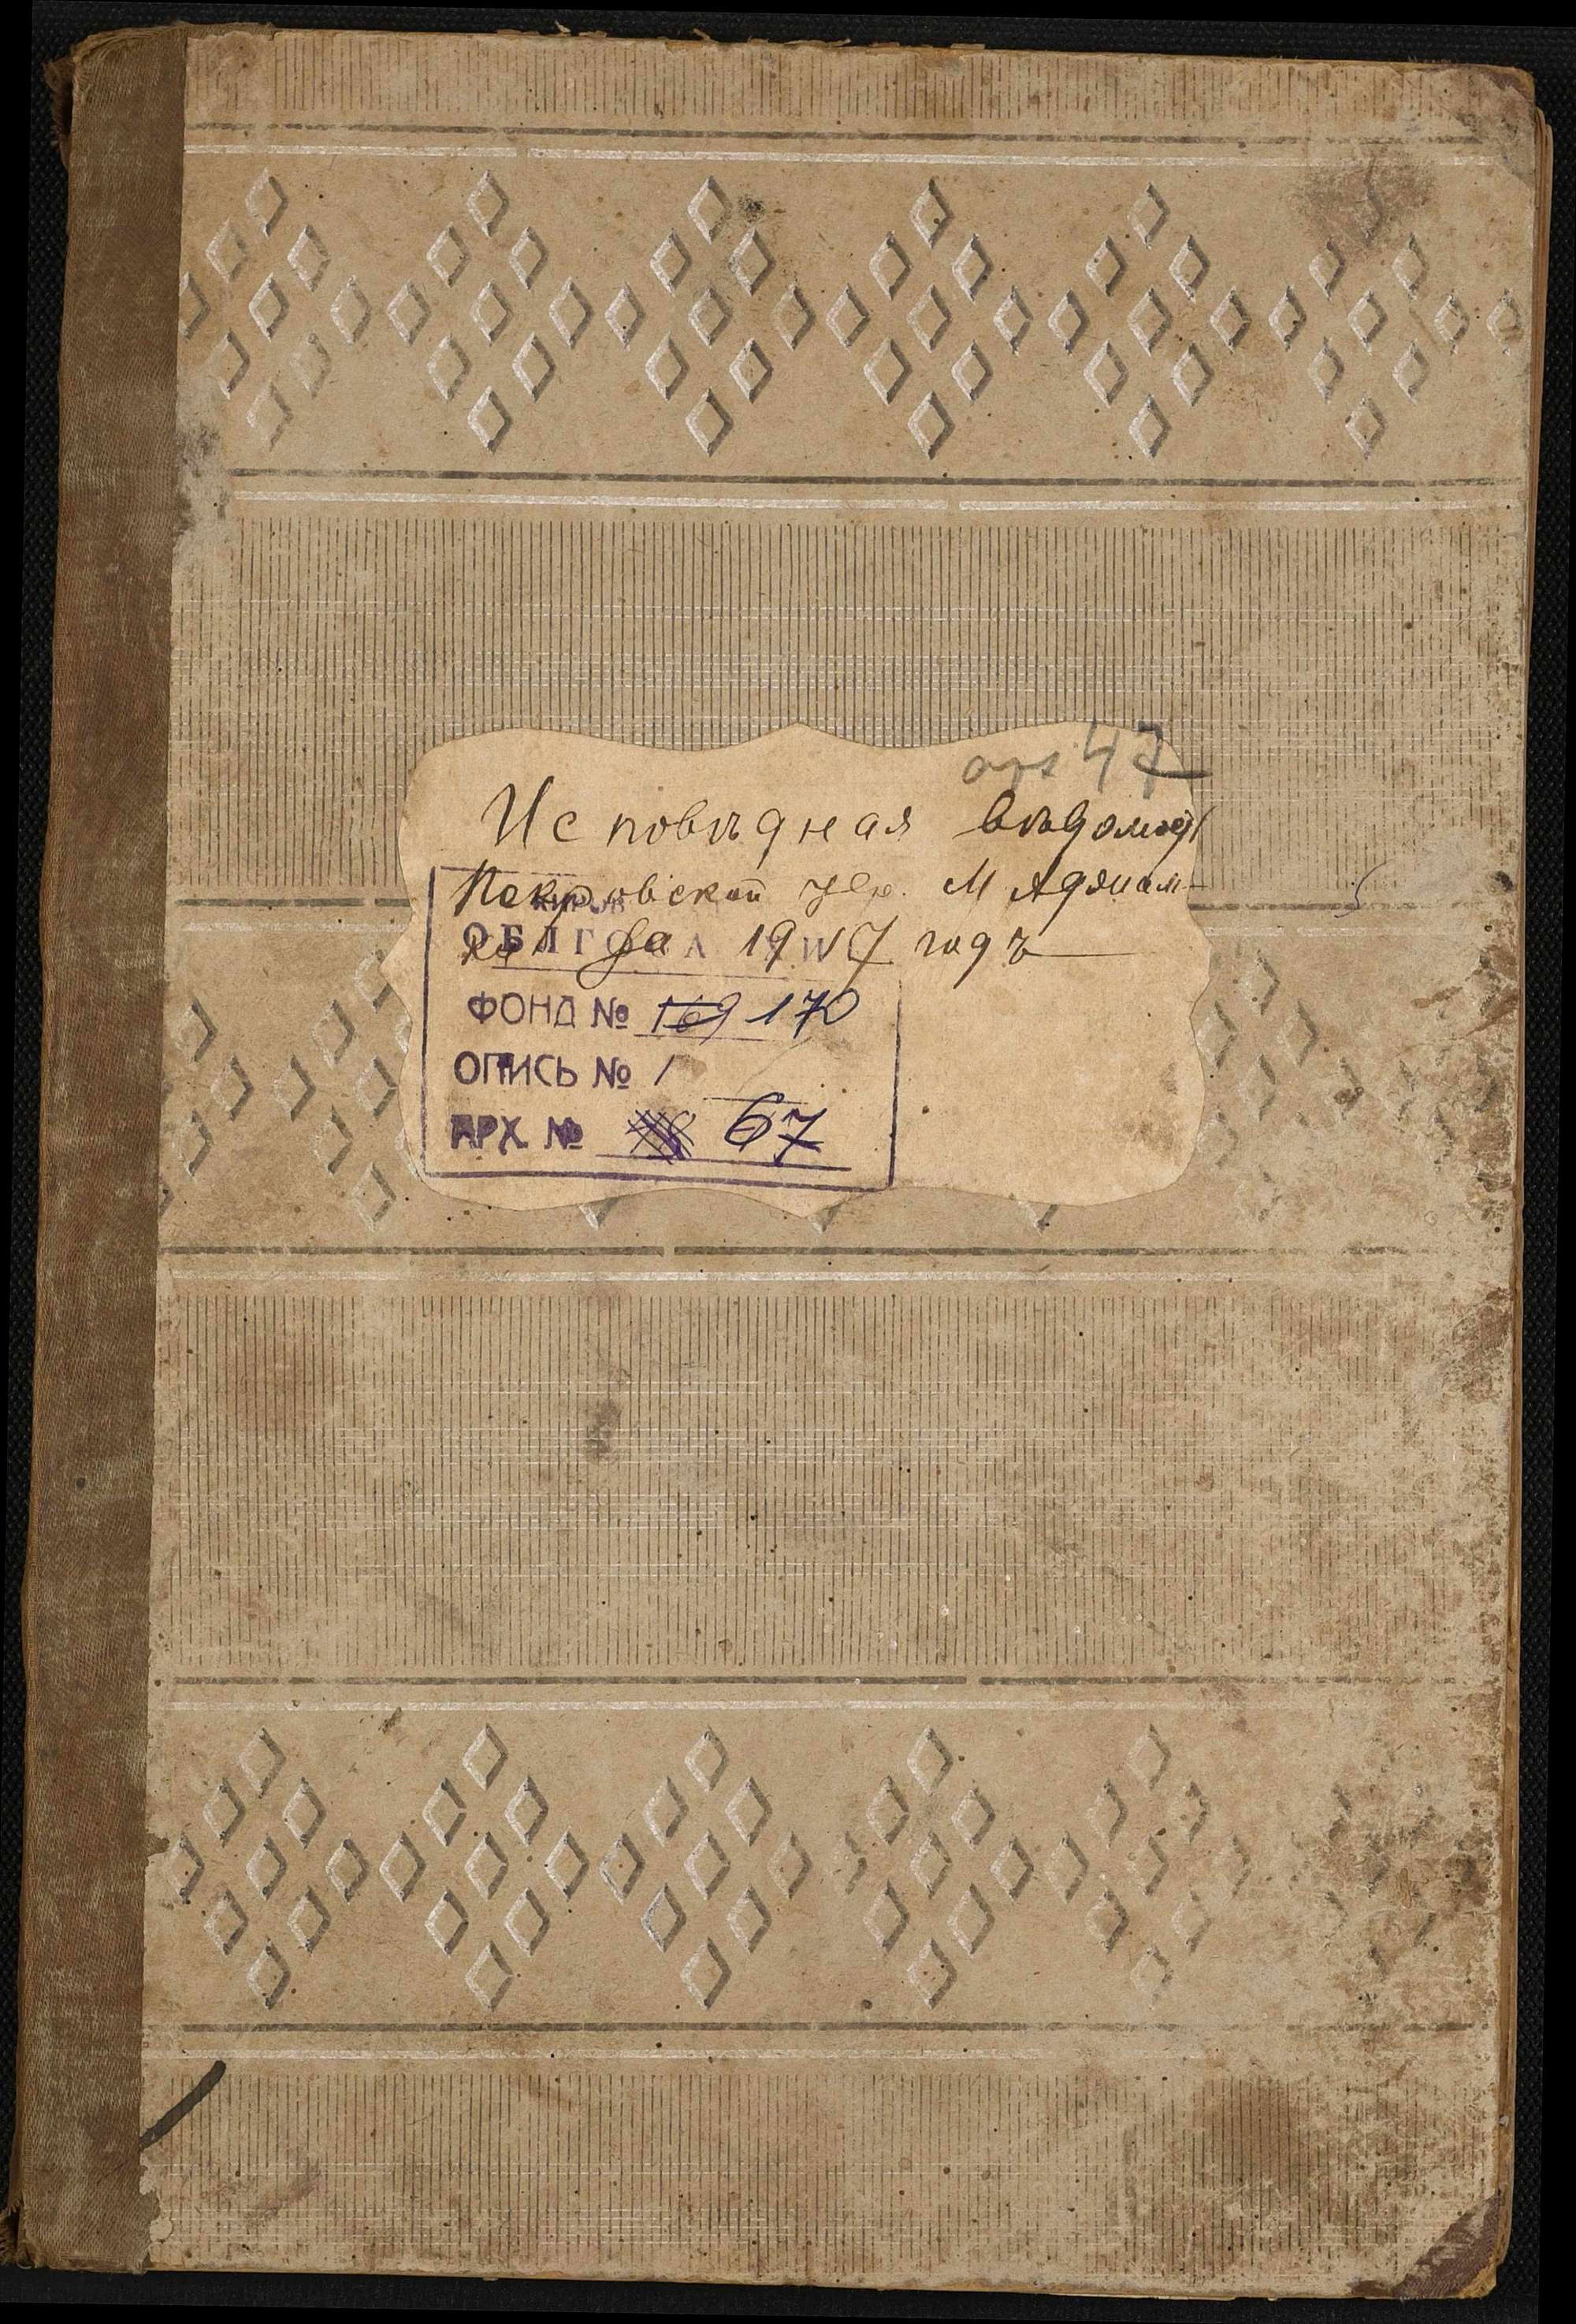 арх 47
Исповѣдная вѣдомость
Покровской цер. М Аджам-
ка за 1917 годъ
ОБЛГОСА
ФОНД № 169 170
ОПИСЬ № 1
АРХ. № 67